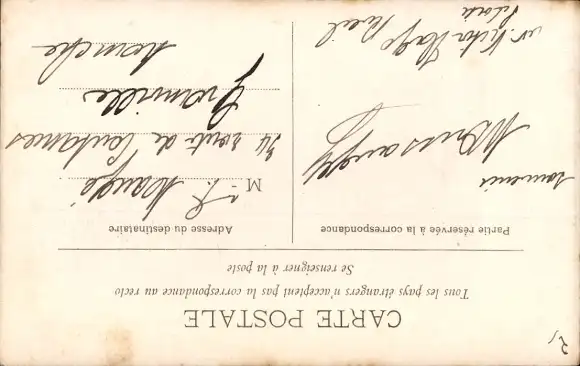 CARTE POSTALE
Tous les pays étrangers n'acceptent pas la correspondance au recto
Se renseigner à la poste
Partie réservée à la correspondance
Adresse du destinataire
souvenir
Victor Hugo
M
34 route de Coutances
Granville
Manche